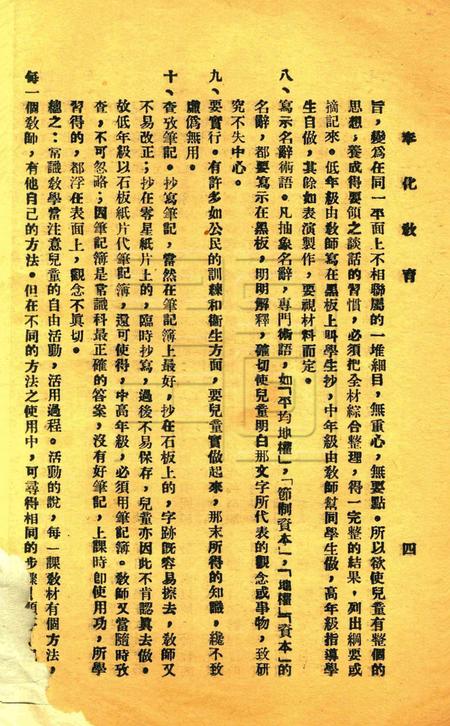 奉化教育
四
旨，變為在同一平面上不相聯屬的一堆細目，無重心，無要點。所以欲使兒童有整個的
思想，養成得要領之談話的習慣，必須把全材綜合整理，得一完整的結果，列出綱要或
摘記來。低年級由敎師寫在黑板上叫學生抄，中年級由敎師幫同學生做，高年級指導學
生自做，其餘如表演製作，要視材料而定。
八、寫示名辭術語。凡抽象名辭，專門術語，如「平均地權」，「節制資本」，「地權」「資本」的
名辭，都要寫示在黑板，明明解釋，確切使兒童明白那文字所代表的觀念或事物，致研
究不失中心。
九、要實行。有許多如公民的訓練和衞生方面，要兒童實做起來，那末所得的知識，纔不致
虛僞無用。
十、查攷筆記。抄寫筆記，當然在筆記簿上最好，抄在石板上的，字跡旣容易擦去，敎師又
不易改正；抄在零星紙片上的，臨時抄寫，過後不易保存，兒童亦因此不肯認眞去做。
故低年級以石板紙片代筆記簿，還可使得，中高年級，必須用筆記簿。敎師又當隨時攷
查，不可忽略；因筆記簿是常識科最正確的答案，沒有好筆記，上課時卽使用功，所學
習得的，都浮在表面上，觀念不眞切。
總之：常識敎學當注意兒童的自由活動，活用過程。活動的說，每一課敎材有個方法，
每一個敎師，有他自己的方法。但在不同的方法之使用中，可尋得相同的步驟